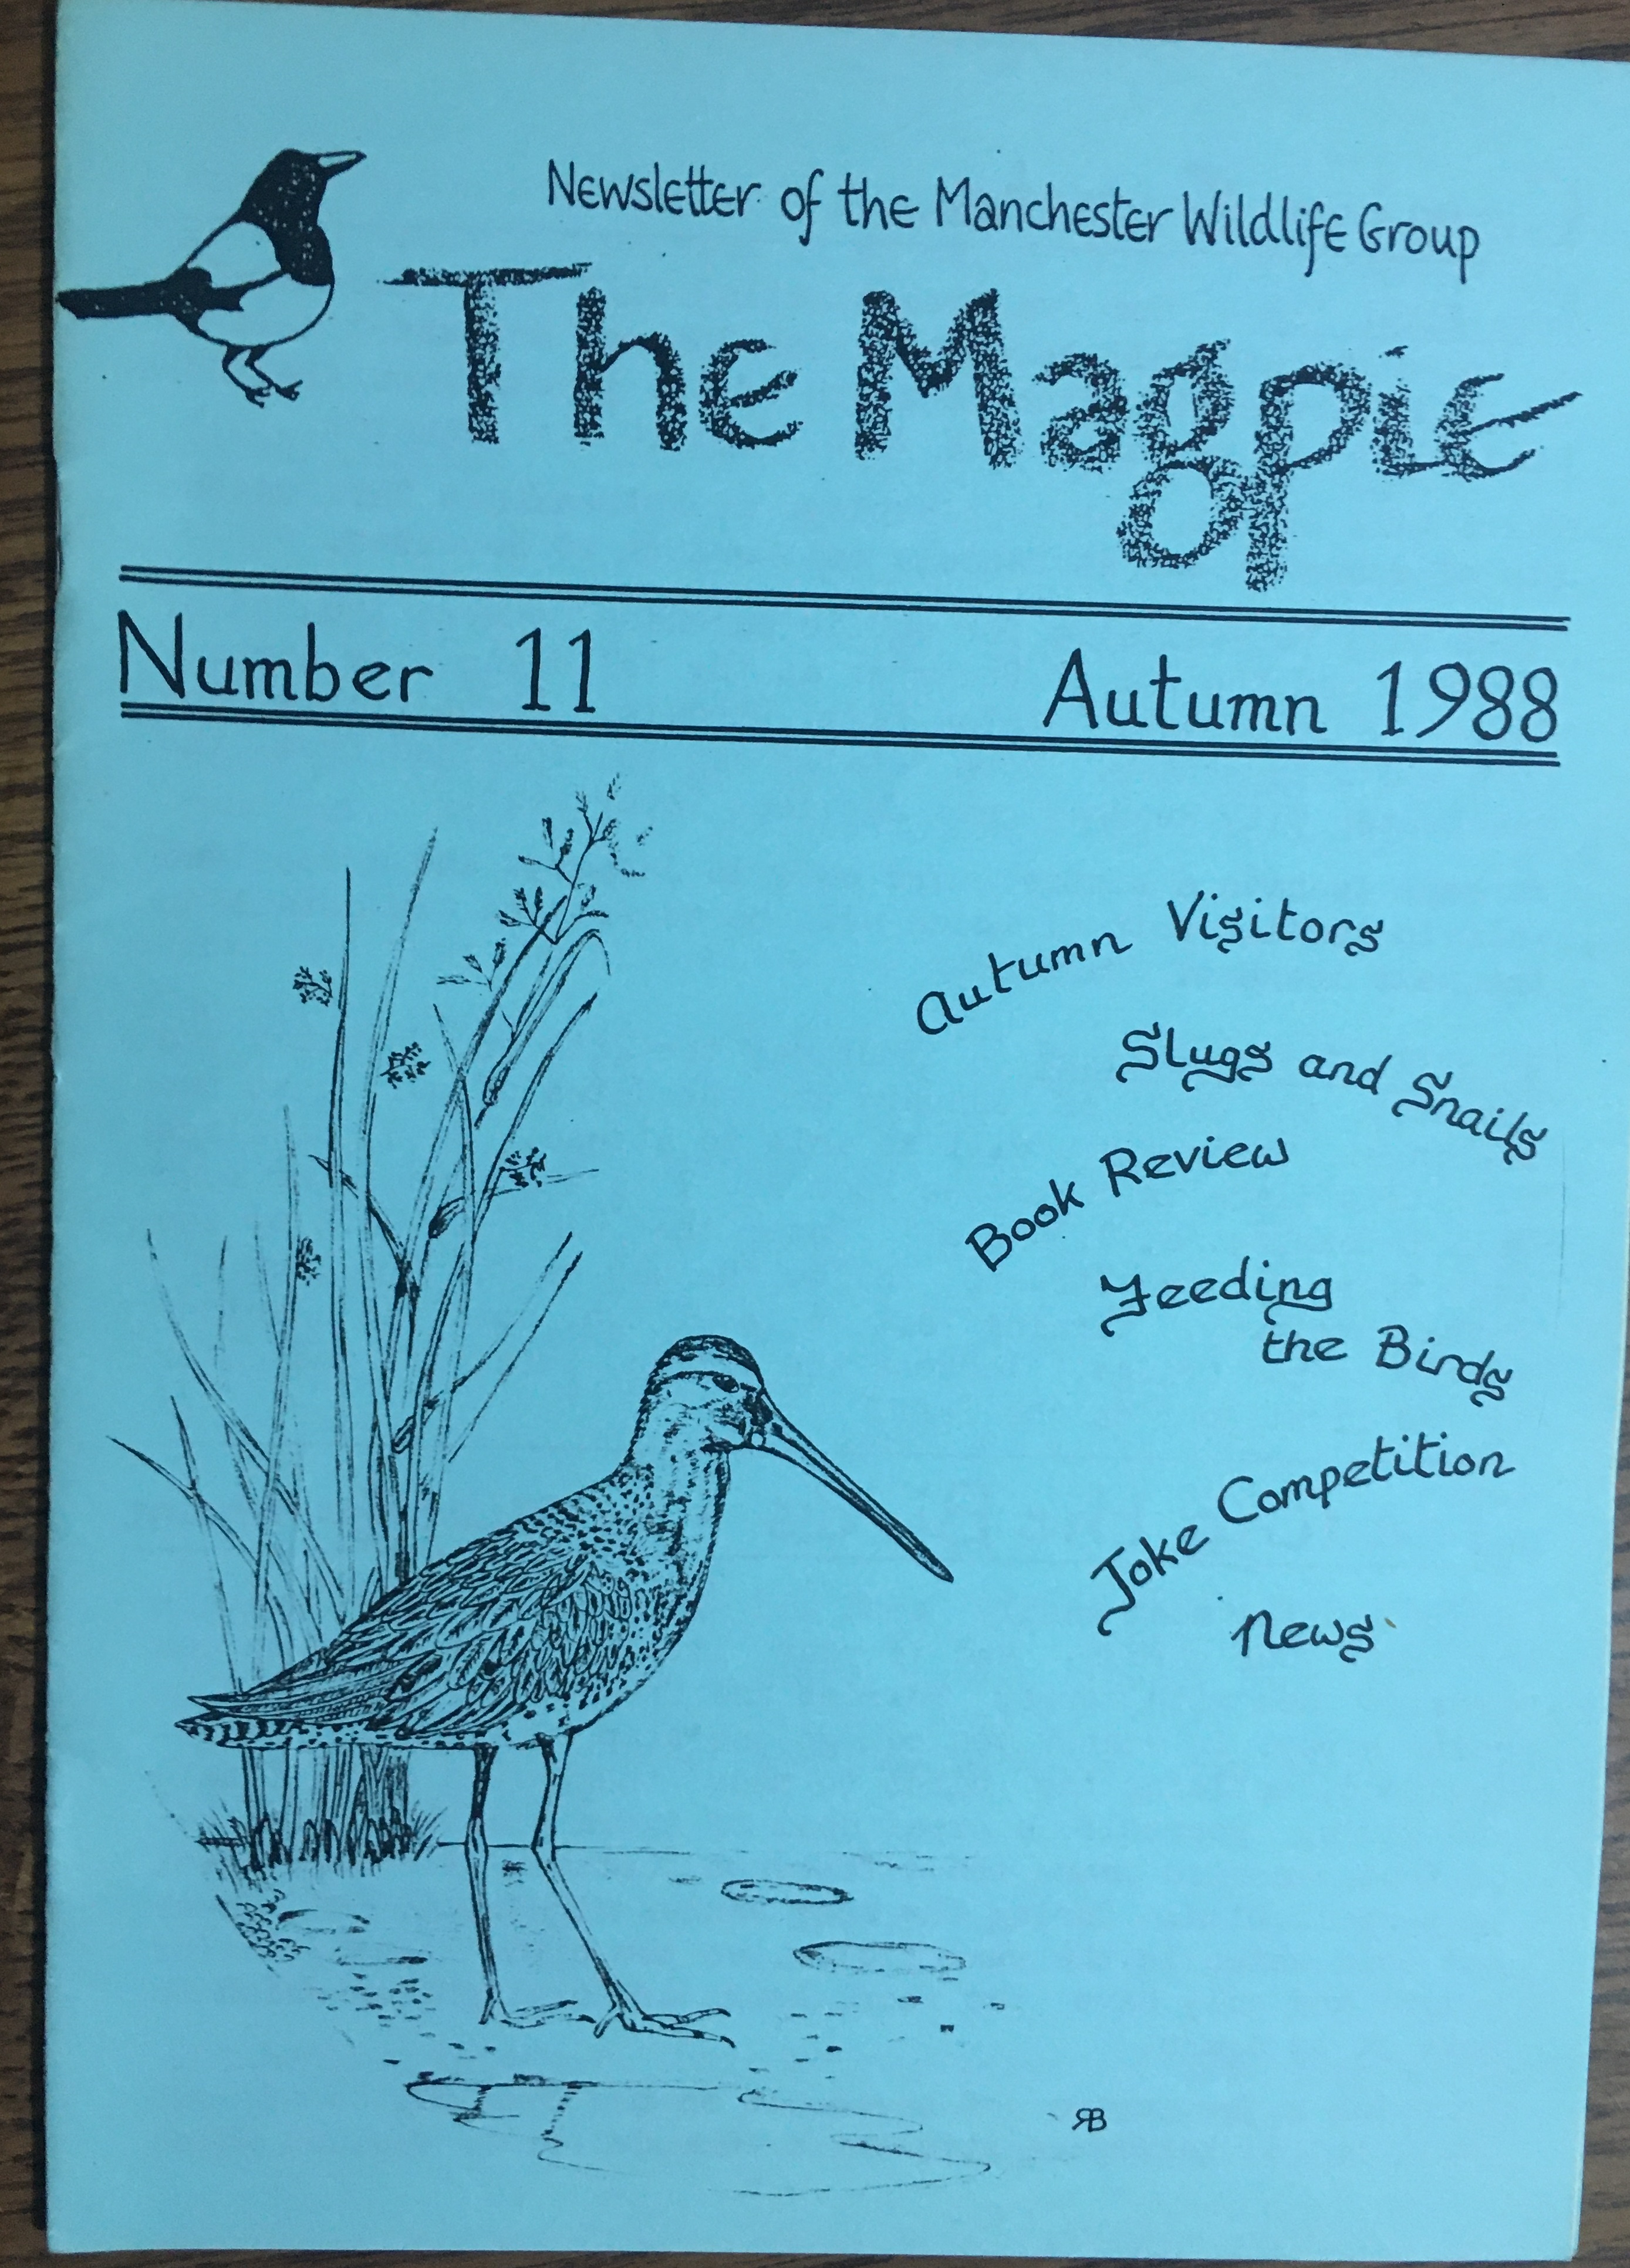 Newsletter of the Manchester Wildlife Group
The Magpie
Number 11 Autumn 1988
Autumn Visitors
Slugs and Snails
Book Review
Feeding
the Birds
Joke Competition
News
RB